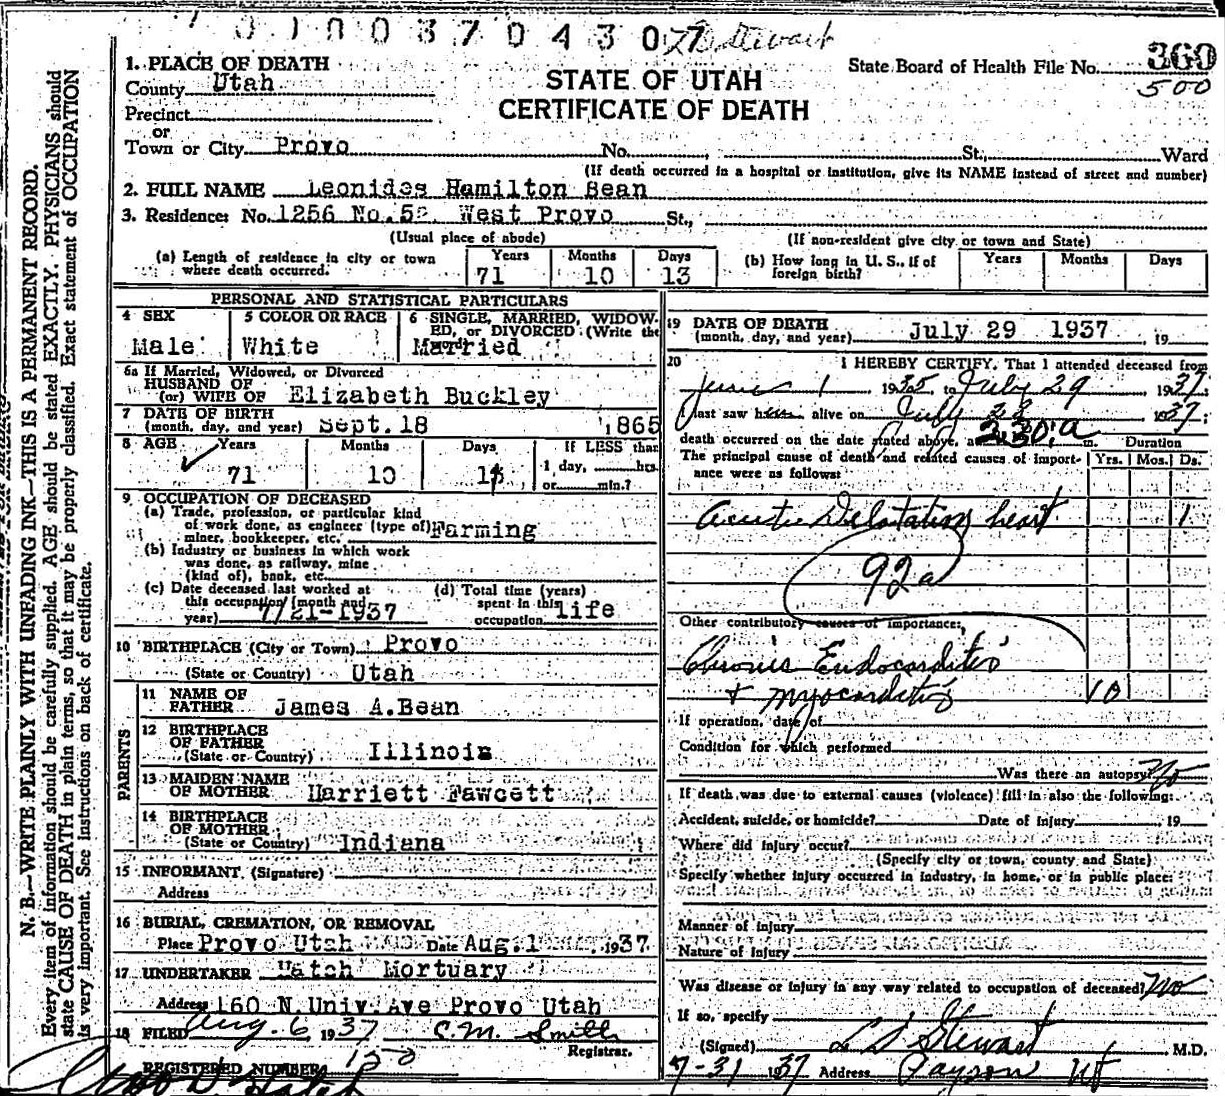 1010037043 07 L D Stewart
1. PLACE OF DEATH
County Utah
Precinct
or
Town or City Provo No. St., Ward
STATE OF UTAH
CERTIFICATE OF DEATH
State Board of Health File No. 360
500
(If death occurred in a hospital or institution, give its NAME instead of street and number)
2. FULL NAME Leonidas Hamilton Bean
3. Residence: No. 1256 No. 5 West Provo St.,
(Usual place of abode) (If non-resident give city or town and State)
(a) Length of residence in city or town where death occurred. Years 71 Months 10 Days 13
(b) How long in U. S., if of foreign birth? Years Months Days
PERSONAL AND STATISTICAL PARTICULARS
4 SEX Male
5 COLOR OR RACE White
6 SINGLE, MARRIED, WIDOWED, or DIVORCED (Write the word) Married
6a If Married, Widowed, or Divorced
HUSBAND OF
(or) WIFE OF Elizabeth Buckley
7 DATE OF BIRTH
(month, day, and year) Sept. 18 1865
8 AGE Years 71 Months 10 Days If LESS than
1 day, hrs.
or min.?
9 OCCUPATION OF DECEASED
(a) Trade, profession, or particular kind
of work done, as engineer (type of)
miner, bookkeeper, etc. Farming
(b) Industry or business in which work
was done, as railway, mine
(kind of), bank, etc.
(c) Date deceased last worked at
this occupation (month and
year) 7/21-1937
(d) Total time (years)
spent in this
occupation life
10 BIRTHPLACE (City or Town) Provo
(State or Country) Utah
PARENTS
11 NAME OF
FATHER James A. Bean
12 BIRTHPLACE
OF FATHER
(State or Country) Illinois
13 MAIDEN NAME
OF MOTHER Harriett Fawcett
14 BIRTHPLACE
OF MOTHER
(State or Country) Indiana
15 INFORMANT (Signature)
Address
16 BURIAL, CREMATION, OR REMOVAL
Place Provo Utah Date Aug. 1 1937
17 UNDERTAKER Hatch Mortuary
Address 160 N. Univ. Ave Provo Utah
18 FILED Aug. 6, 1937 C. M. Smith
Registrar.
REGISTERED NUMBER 150
19 DATE OF DEATH
(month, day, and year) July 29 1937 , 19
20 I HEREBY CERTIFY, That I attended deceased from
June 1 1935 to July 29 1937
I last saw him alive on July 1937;
death occurred on the date stated above, at 2:30 a m. Duration
The principal cause of death and related causes of importance were as follows: Yrs. Mos. Ds.
Acute Dilatation heart 1
92a
Other contributory causes of importance:
Chronic Endocarditis
+ myocarditis 10
If operation, date of
Condition for which performed
Was there an autopsy? No
If death was due to external causes (violence) fill in also the following:
Accident, suicide, or homicide? Date of injury 19
Where did injury occur?
(Specify city or town, county and State)
Specify whether injury occurred in industry, in home, or in public place:
Manner of injury
Nature of injury
Was disease or injury in any way related to occupation of deceased? No
If so, specify
(Signed) L D Stewart M.D.
7-31 1937 Address Payson Ut
N. B.—WRITE PLAINLY WITH UNFADING INK—THIS IS A PERMANENT RECORD.
Every item of information should be carefully supplied. AGE should be stated EXACTLY. PHYSICIANS should
state CAUSE OF DEATH in plain terms, so that it may be properly classified. Exact statement of OCCUPATION
is very important. See instructions on back of certificate.